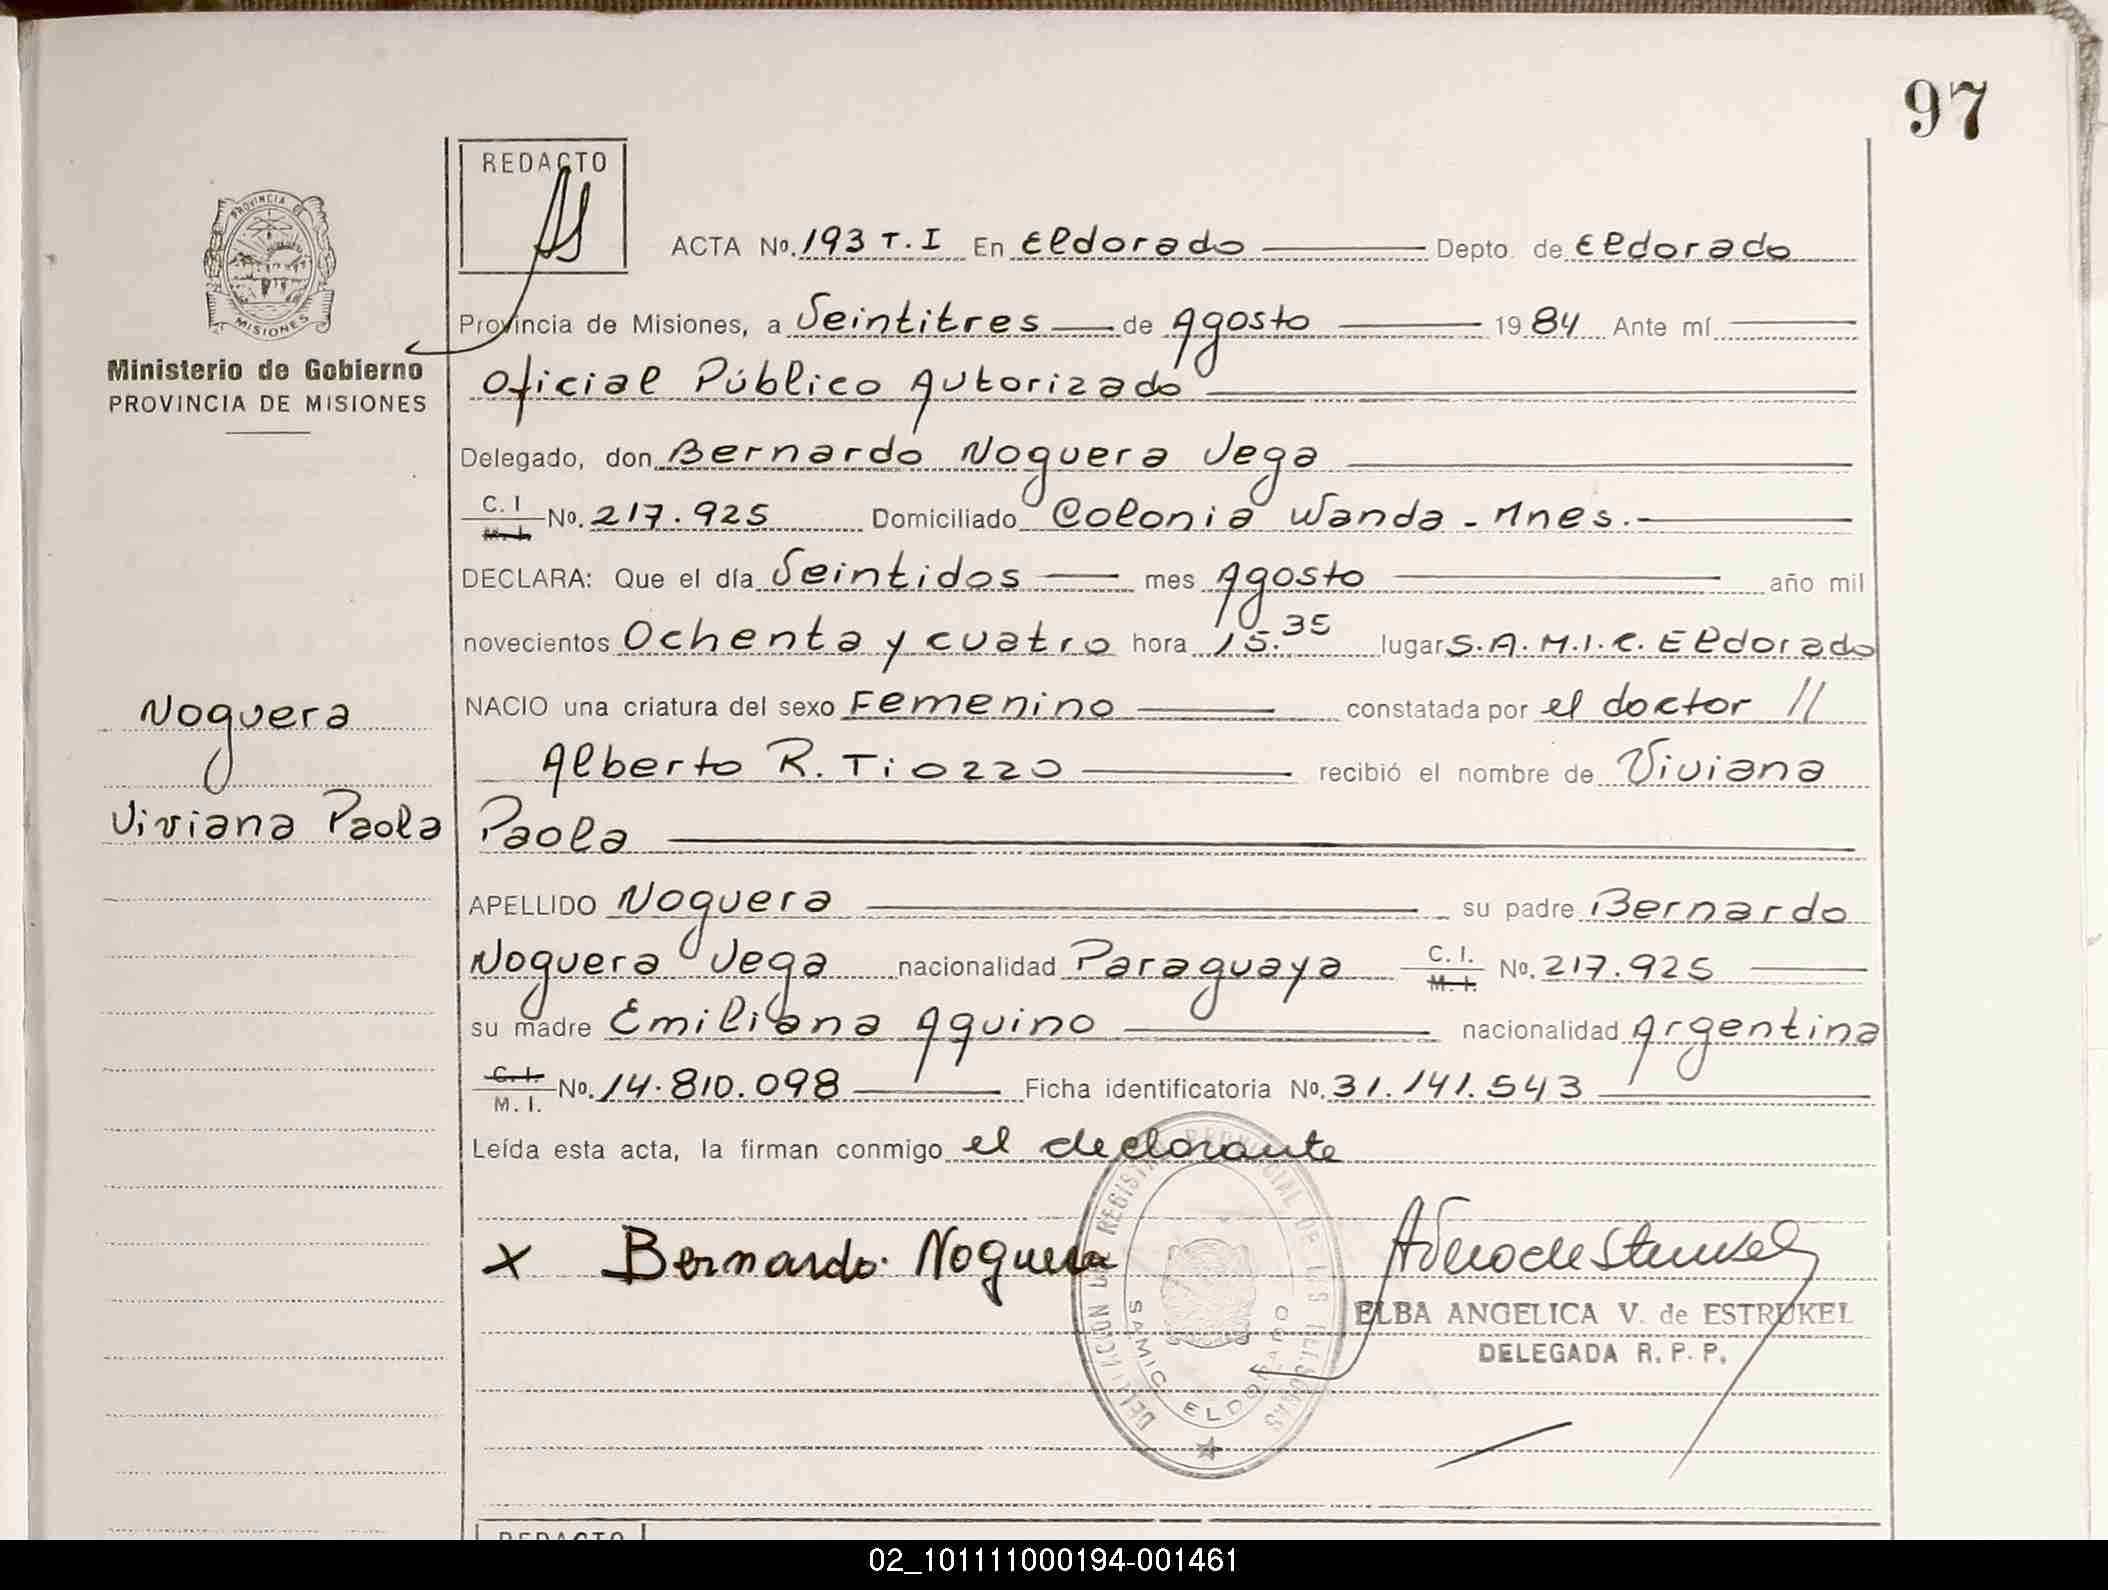 97
REDACTO
PROVINCIA DE
MISIONES
Ministerio de Gobierno
PROVINCIA DE MISIONES
ACTA No. 193 T. I En Eldorado Depto. de Eldorado
Provincia de Misiones, a Veintitres de Agosto 1984 Ante mí
Oficial Público Autorizado
Delegado, don Bernardo Noguera Vega
C. I
M. I. No. 217.925 Domiciliado Colonia Wanda - Mnes.-
DECLARA: Que el día Veintidos mes Agosto año mil
novecientos Ochenta y cuatro hora 15.35 lugar S.A.M.I.C. Eldorado
NACIO una criatura del sexo Femenino constatada por el doctor //
Alberto R. Tiozzo recibió el nombre de Viviana
Paola
Noguera
Viviana Paola
APELLIDO Noguera su padre Bernardo
Noguera Vega nacionalidad Paraguaya C. I. M. I. No. 217.925
su madre Emiliana Aquino nacionalidad Argentina
C. I.
M. I. No. 14.810.098 Ficha identificatoria No. 31.141.543
Leída esta acta, la firman conmigo el declarante
x Bernardo. Noguera
SAMIC ELDORADO
ELBA ANGELICA V. de ESTRUKEL
DELEGADA R. P. P.
REDACTO
02_101111000194-001461